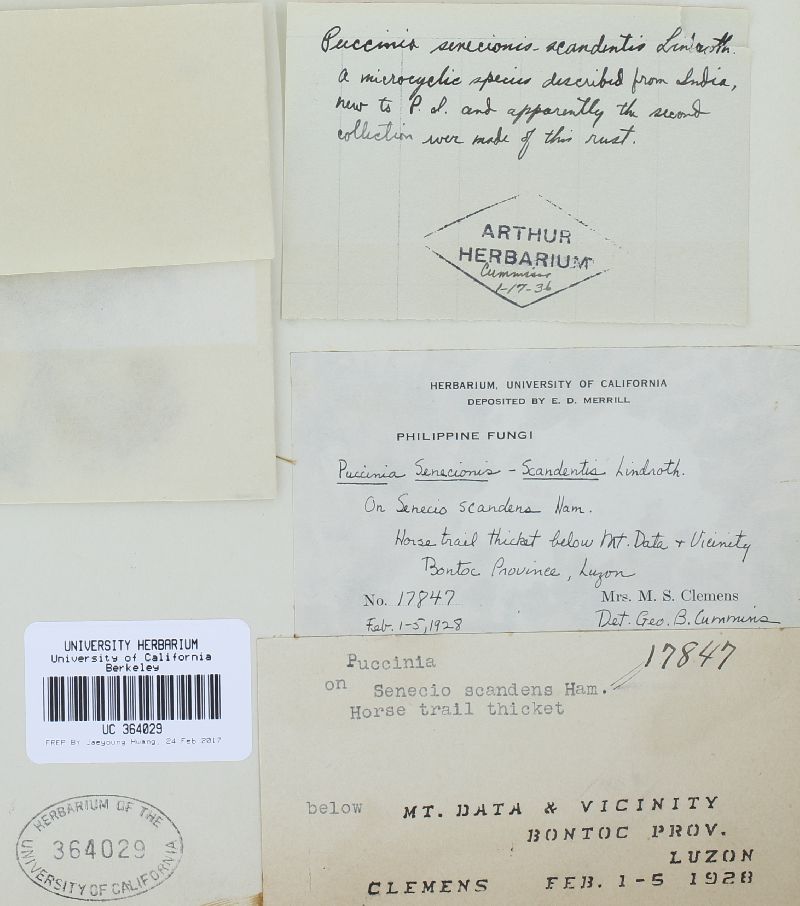 Puccinia senecionis-scandentis Lindroth.
A microcyclic species described from India,
new to P. I. and apparently the second
collection ever made of this rust.
ARTHUR
HERBARIUM
Cummins
1-17-36
HERBARIUM, UNIVERSITY OF CALIFORNIA
DEPOSITED BY E. D. MERRILL
PHILIPPINE FUNGI
Puccinia Senecionis - Scandentis Lindroth.
On Senecio scandens Ham.
Horse trail thicket below Mt. Data & Vicinity
Bontoc Province, Luzon
No. 17847 Mrs. M. S. Clemens
Feb. 1-5, 1928 Det. Geo. B. Cummins
UNIVERSITY HERBARIUM
University of California
Berkeley
UC 364029
PREP By Jaeyoung Huang, 24 Feb 2017
HERBARIUM OF THE
364029
UNIVERSITY OF CALIFORNIA
Puccinia 17847
on Senecio scandens Ham.
Horse trail thicket
below MT. DATA & VICINITY
BONTOC PROV.
LUZON
CLEMENS FEB. 1-5 1928